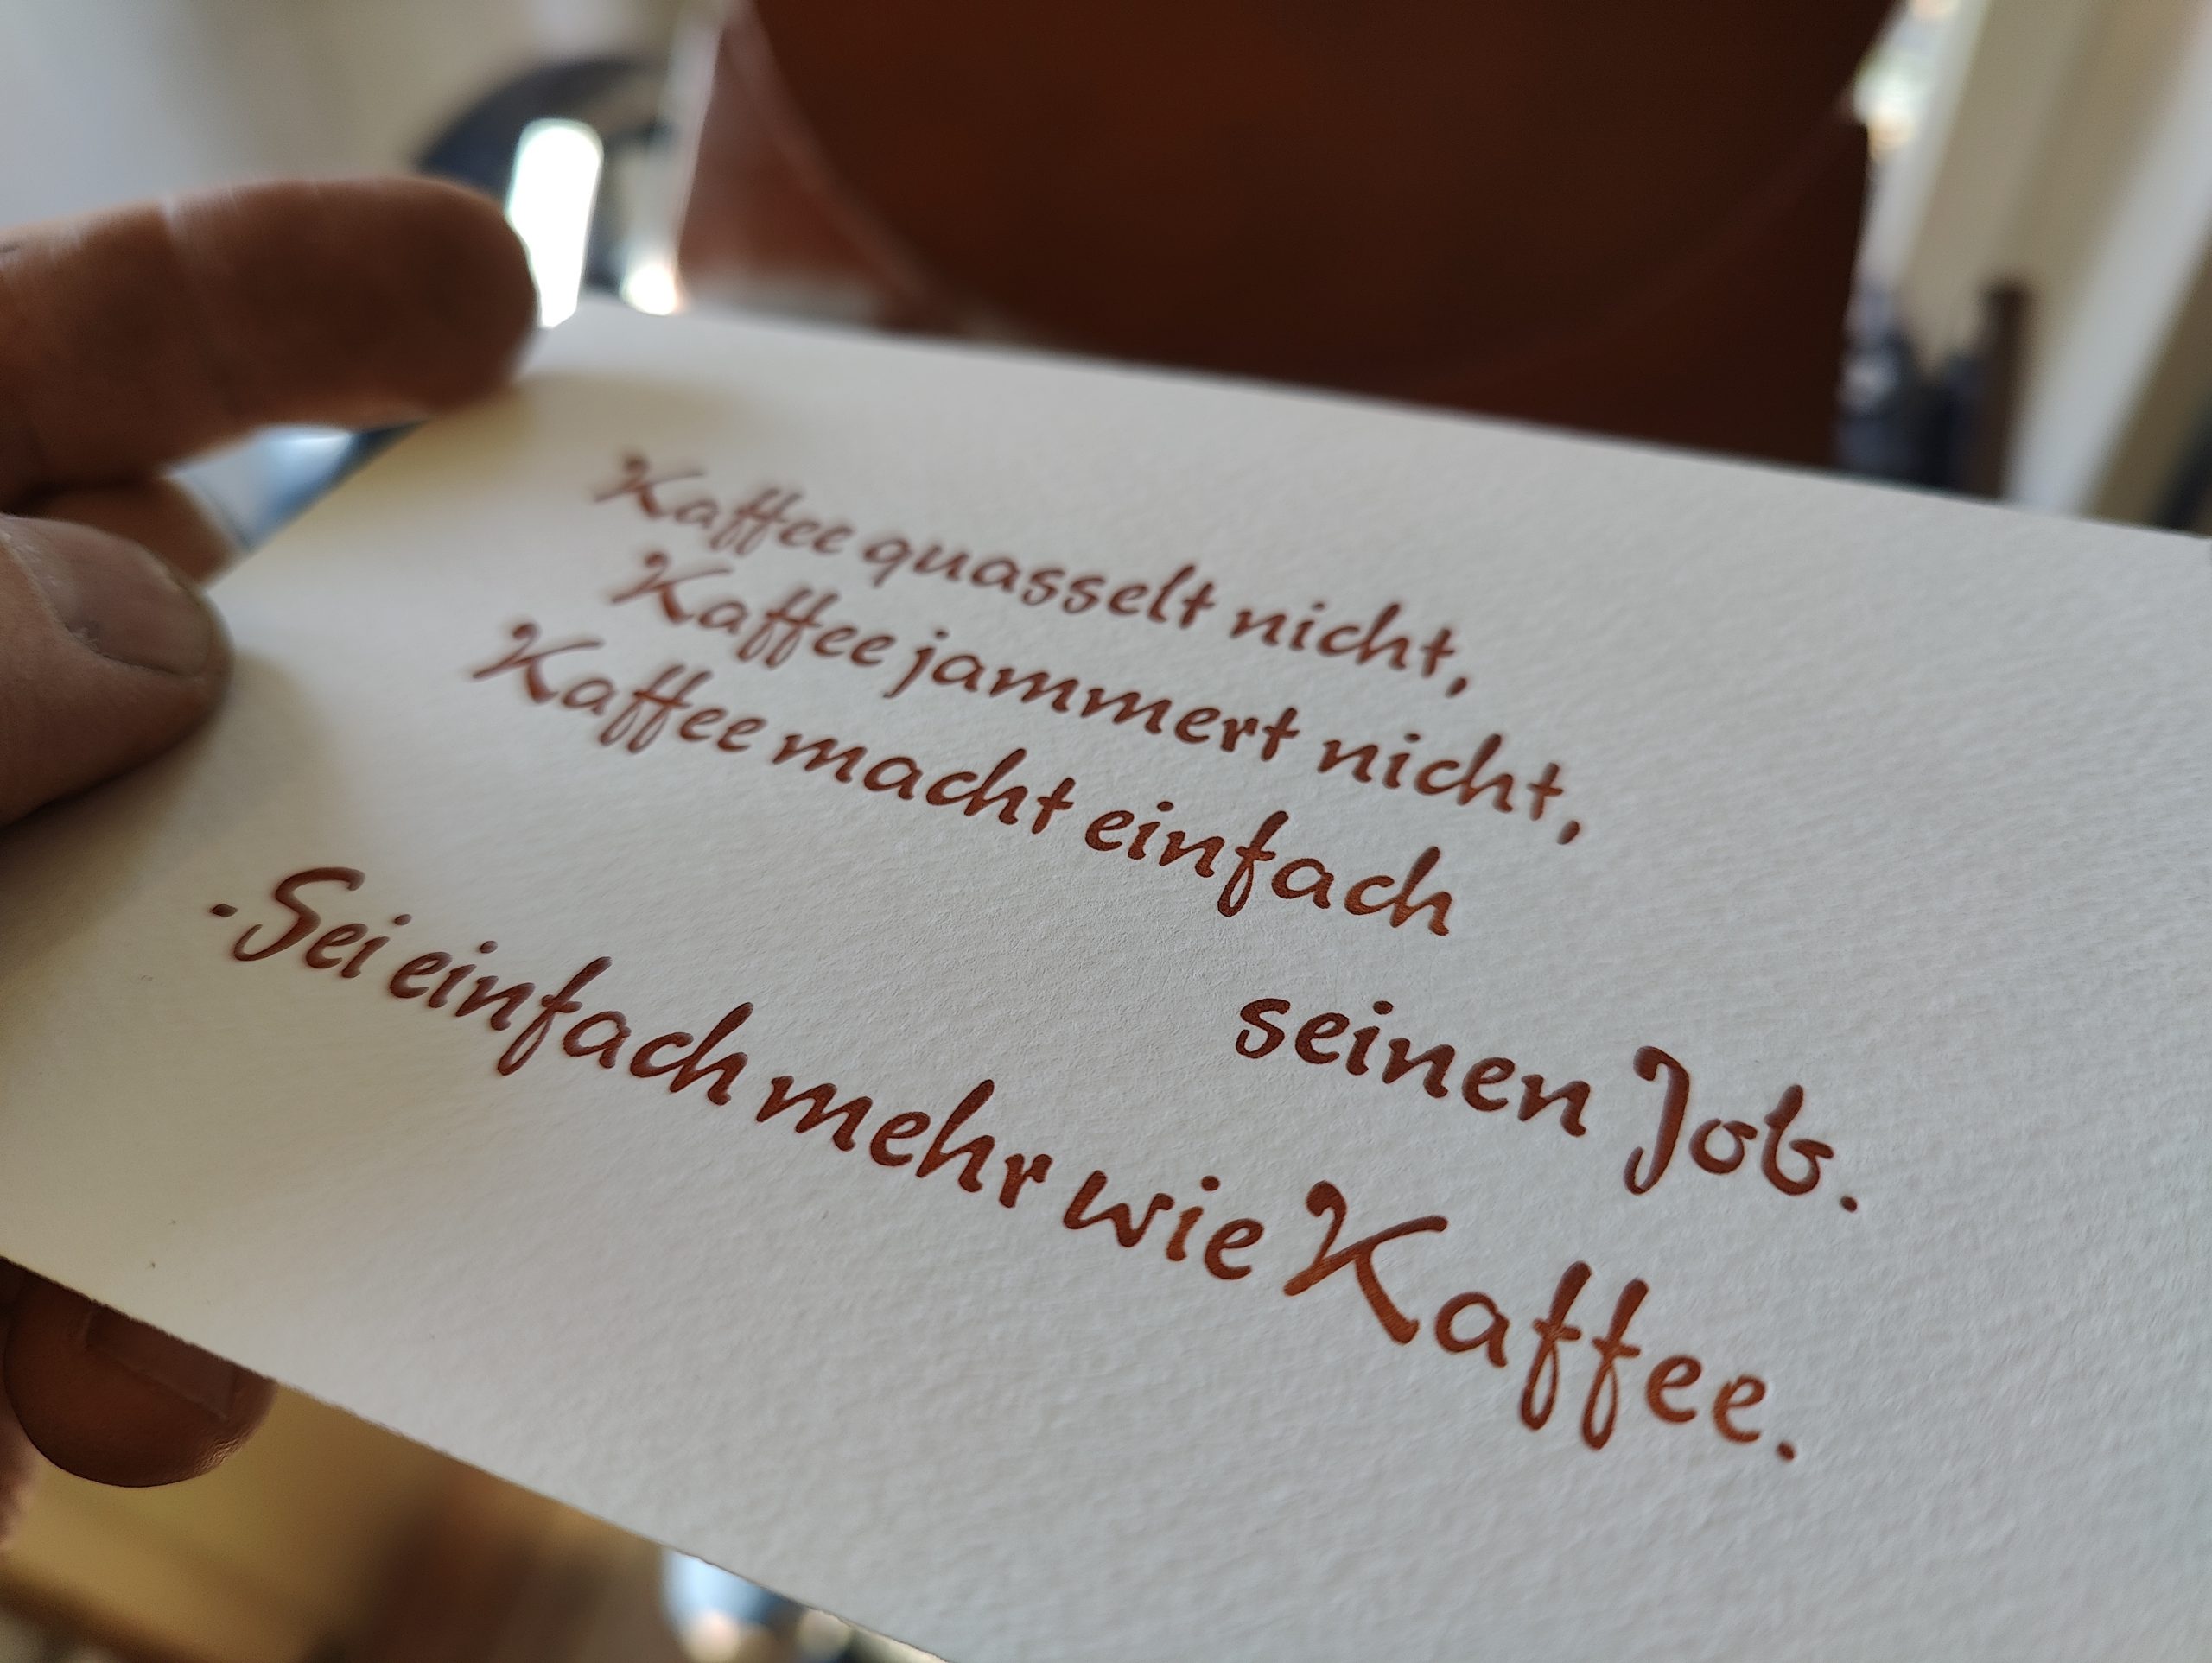 Kaffee quasselt nicht,
Kaffee jammert nicht,
Kaffee macht einfach
seinen Job.
. Sei einfach mehr wie Kaffee.